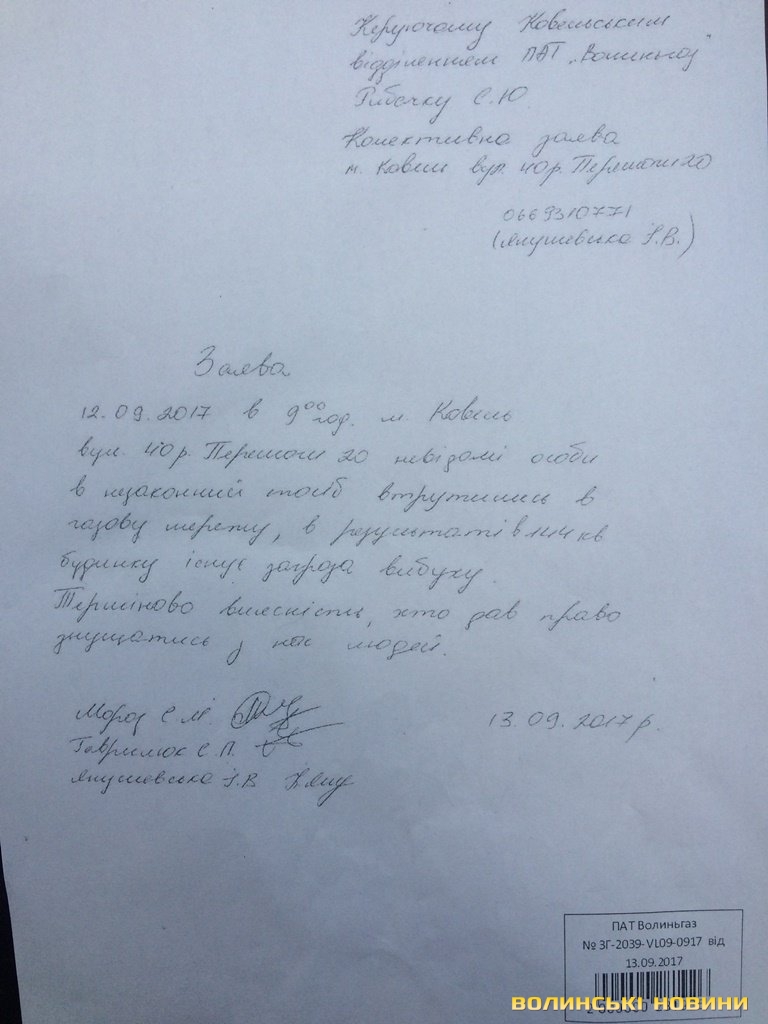 Керуючому Ковельським
відділенням ПАТ „Волиньгаз"
Рибачку С.Ю.
Колективна заява
м. Ковель вул. 40р. Перемоги 20
0669310771
(Янушевська І.В.)
Заява
12.09.2017 в 9⁰⁰ год. м. Ковель
вул. 40р. Перемоги 20 невідомі особи
в незаконний спосіб втрутились в
газову мережу, в результаті в 144 кв
будинку існує загроза вибуху.
Терміново виясність, хто дав право
знущатись з нас людей.
Мороз С.М.
13.09.2017р.
Гаврилюк С.П.
Янушевська І.В
ПАТ Волиньгаз
№ ЗГ-2039-VL09-0917 від
13.09.2017
ВОЛИНСЬКІ НОВИНИ